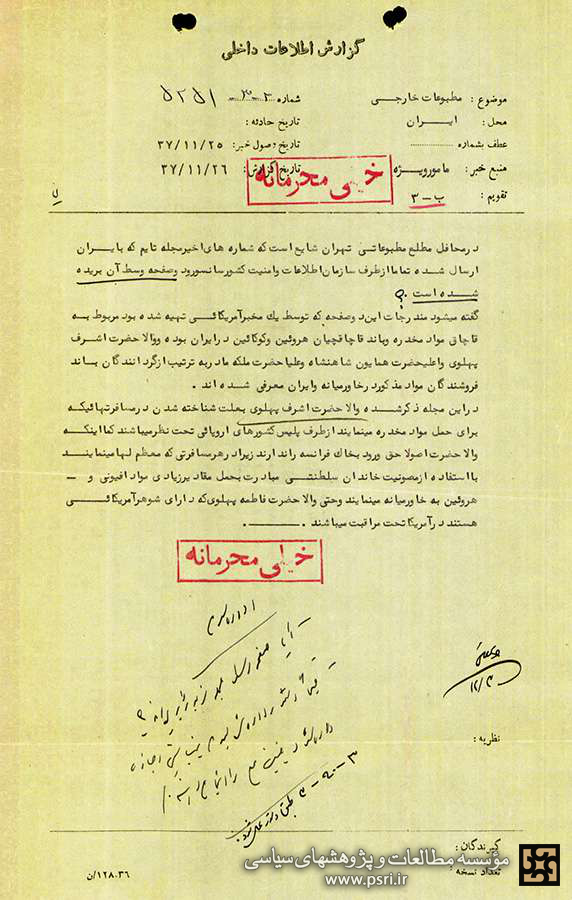 گزارش اطلاعات داخلی
موضوع : مطبوعات خارجی
شماره ۳۰۳
محل : ایران
تاریخ حادثه :
عطف بشماره
تاریخ وصول خبر: ۳۷/۱۱/۲۵
منبع خبر : مامور ویژه
تاریخ گزارش: ۳۷/۱۱/۲۶
تقویم : ب-۳
خیلی محرمانه
درمحافل مطلع مطبوعاتی تهران شایع است که شماره های اخیر مجله تایم که بایران
ارسال شده تماما ازطرف سازمان اطلاعات وامنیت کشور سانسور و دو صفحه وسط آن بریده
شده است .
گفته میشود مندرجات این دو صفحه که توسط یک مخبر آمریکائی تهیه شده بود مربوط به
قاچاق مواد مخدره وباند قاچاقچیان هروئین وکوکائین درایران بوده ووالاحضرت اشرف
پهلوی واعلیحضرت همایون شاهنشاه وعلیاحضرت ملکه مادر به ترتیب ازگردانندگان باند
فروشندگان مواد مذکور در خاورمیانه وایران معرفی شده اند .
دراین مجله ذکر شده والاحضرت اشرف پهلوی بعلت شناخته شدن درمسافرتهائیکه
برای حمل مواد مخدره مینمایند ازطرف پلیس کشورهای اروپائی تحت نظر میباشند کما اینکه
والاحضرت اصولا حق ورود بخاک فرانسه راندارند زیرا در هرمسافرتی که معظم لها مینمایند
با استفاده ازمصونیت خاندان سلطنتی مبادرت بحمل مقادیر زیادی مواد افیونی و -
هروئین به خاورمیانه مینمایند وحتی والاحضرت فاطمه پهلوی که دارای شوهر آمریکائی
هستند درآمریکا تحت مراقبت میباشند .
خیلی محرمانه
اداره سوم
نظریه :
گیرندگان :
تعداد نسخه
۱۲۸-۳۶/ن
مؤسسه مطالعات و پژوهشهای سیاسی
www.psri.ir